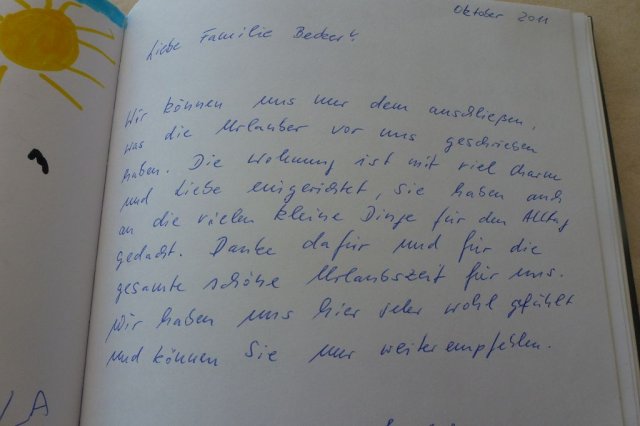 Oktober 2011
Liebe Familie Becker!
Wir können uns nur dem anschließen,
was die Urlauber vor uns geschrieben
haben. Die Wohnung ist mit viel Charm
und Liebe eingerichtet, Sie haben auch
an die vielen kleine Dinge für den Alltag
gedacht. Danke dafür und für die
gesamte schöne Urlaubszeit für uns.
Wir haben uns hier sehr wohl gefühlt
und können Sie nur weiterempfehlen.
/ A